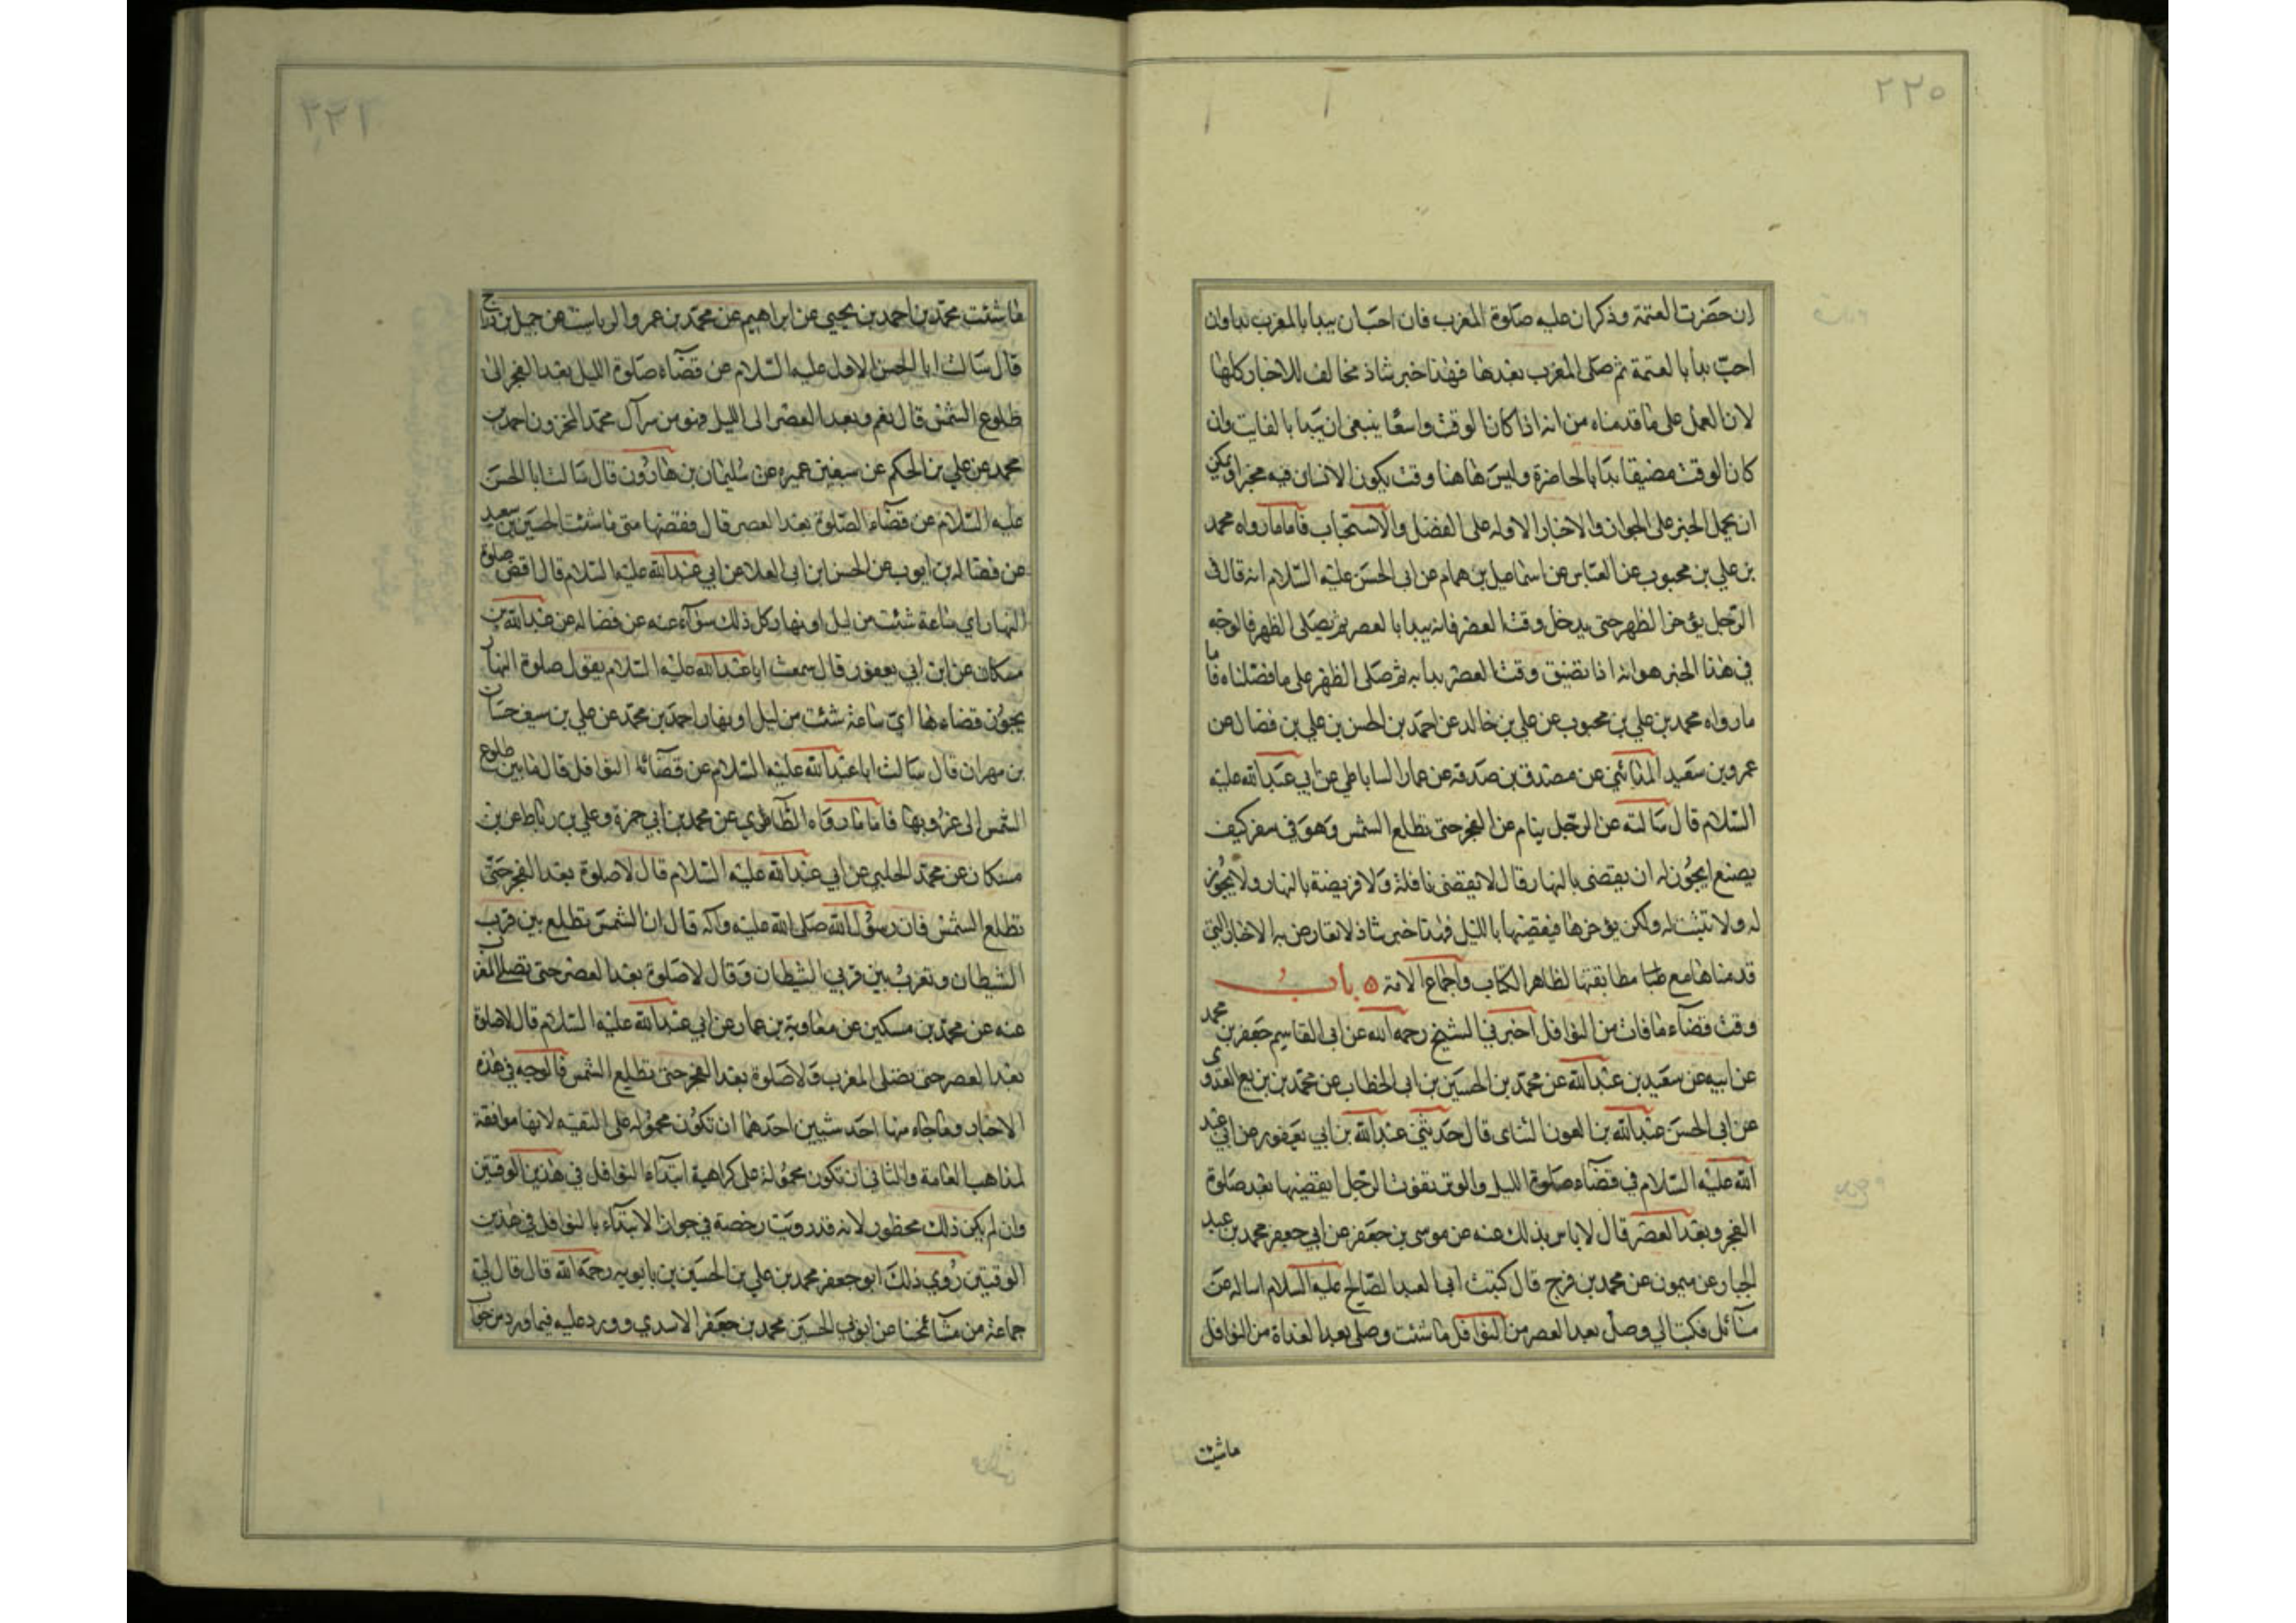 ٢٢٥
ان حضرت العتمة وذكر ان عليه صلوة المغرب فان احب ان يبدا بالمغرب بدا وان
احب بدأ بالعتمة ثم صلى المغرب بعدها فهذا خبر شاذ مخالف للاخبار كلها
لان العمل على ما قدمناه من انه اذا كان الوقت واسعا ينبغي ان يبدا بالفايت وان
كان الوقت مضيقا بدا بالحاضرة وليس هاهنا وقت يكون الانسان فيه مخيرا ويمكن
ان يحمل الخبر على الجواز والاخبار الاوله على الفضل والاستحباب فاما ما رواه محمد
بن علي بن محبوب عن العباس عن اسماعيل بن همام عن ابي الحسن عليه السلام انه قال في
الرجل يؤخر الظهر حتى يدخل وقت العصر فانه يبدا بالعصر ثم يصلى الظهر فالوجه
في هذا الخبر هو انه اذا تضيق وقت العصر بدا به ثم صلى الظهر على ما فصلناه فاما
ما رواه محمد بن علي بن محبوب عن علي بن خالد عن احمد بن الحسن بن علي بن فضال عن
عمرو بن سعيد المدائني عن مصدق بن صدقة عن عمار الساباطي عن ابي عبد الله عليه
السلام قال سالته عن الرجل ينام عن الفجر حتى تطلع الشمس وهو في سفر كيف
يصنع ايجوز له ان يقضى بالنهار قال لا يقضى نافلة ولا فريضة بالنهار ولا يجوز
له ولا تثبت له ولكن يؤخرها فيقضيها بالليل فهذا خبر شاذ لا تعارض به الاخبار التي
قدمناها مع مطابقتها لظاهر الكتاب واجماع الامة باب
وقت قضاء ما فات من النوافل اخبرني الشيخ رحمه الله عن ابي القاسم جعفر بن محمد
عن ابيه عن سعيد بن عبد الله عن محمد بن الحسين بن ابي الخطاب عن محمد بن بزيع العدوى
عن ابي الحسن عبد الله بن العون الشاى قال حدثني عبد الله بن ابي يعفور عن ابي عبد
الله عليه السلام في قضاء صلوة الليل والوتر تفوت الرجل ايقضيها بعد صلوة
الفجر وبعد العصر قال لا باس بذلك عنه عن موسى بن جعفر عن ابي جعفر محمد بن عبد
الجبار عن ميمون عن محمد بن فرج قال كتبت الى العبد الصالح عليه السلام اساله عن
مسائل فكتب الي وصل بعد العصر من النوافل ما شئت وصلي بعد الغداة من النوافل
ماشئت
٢٢٦
ما شئت محمد بن احمد بن يحيى عن ابراهيم عن محمد بن عمرو الزيات عن جميل بن دراج
قال سالت ابا الحسن الاول عليه السلام عن قضاء صلوة الليل بعد الفجر الى
طلوع الشمس قال نعم وبعد العصر الى الليل فهو من سر آل محمد المخزون احمد بن
محمد عن علي بن الحكم عن سيف بن عميره عن سليمان بن هارون قال سالت ابا الحسن
عليه السلام عن قضاء الصلوة بعد العصر قال فقضها متى ما شئت الحسين بن سعيد
عن فضاله بن ايوب عن الحسن ابن ابي العلا عن ابي عبد الله عليه السلام قال اقض صلوة
النهار اي ساعة شئت من ليل او نهار كل ذلك سواء عنه عن فضاله عن عبد الله بن
مسكان عن ابن ابي يعفور قال سمعت ابا عبد الله عليه السلام يقول صلوة النهار
يجوز قضاءها اي ساعة شئت من ليل او نهار احمد بن محمد عن علي بن سيف حسان
بن مهران قال سالت ابا عبد الله عليه السلام عن قضاء النوافل قال ما بين طلوع
الشمس الى غروبها فاما ما رواه الطاطري عن محمد بن ابي حمزة وعلي بن رباط عن بن
مسكان عن محمد الحلبي عن ابي عبد الله عليه السلام قال لا صلوة بعد الفجر حتى
تطلع الشمس فان رسول الله صلى الله عليه وآله قال ان الشمس تطلع بين قرب
الشيطان وتغرب بين قربي الشيطان وقال لا صلوة بعد العصر حتى تصلى المغرب
عنه عن محمد بن مسكين عن معاوية بن عمار عن ابي عبد الله عليه السلام قال لا صلوة
بعد العصر حتى يصلى المغرب ولا صلوة بعد الفجر حتى تطلع الشمس فالوجه في هذه
الاخبار وما جاء منها احد شيين احدهما ان تكون محمولة على التقية لانها موافقة
لمذاهب العامة والثاني ان تكون محمولة على كراهية ابتداء النوافل في هذين الوقتين
وان لم يكن ذلك محظور لانه قد رويت رخصة في جواز الابتداء بالنوافل في هذين
الوقتين روي ذلك ابو جعفر محمد بن علي بن الحسين بن بابويه رحمه الله قال قال لي
جماعة من مشائخنا عن ابوبي الحسين محمد بن جعفر الاسدي وورد عليه فيما ورد من جواب